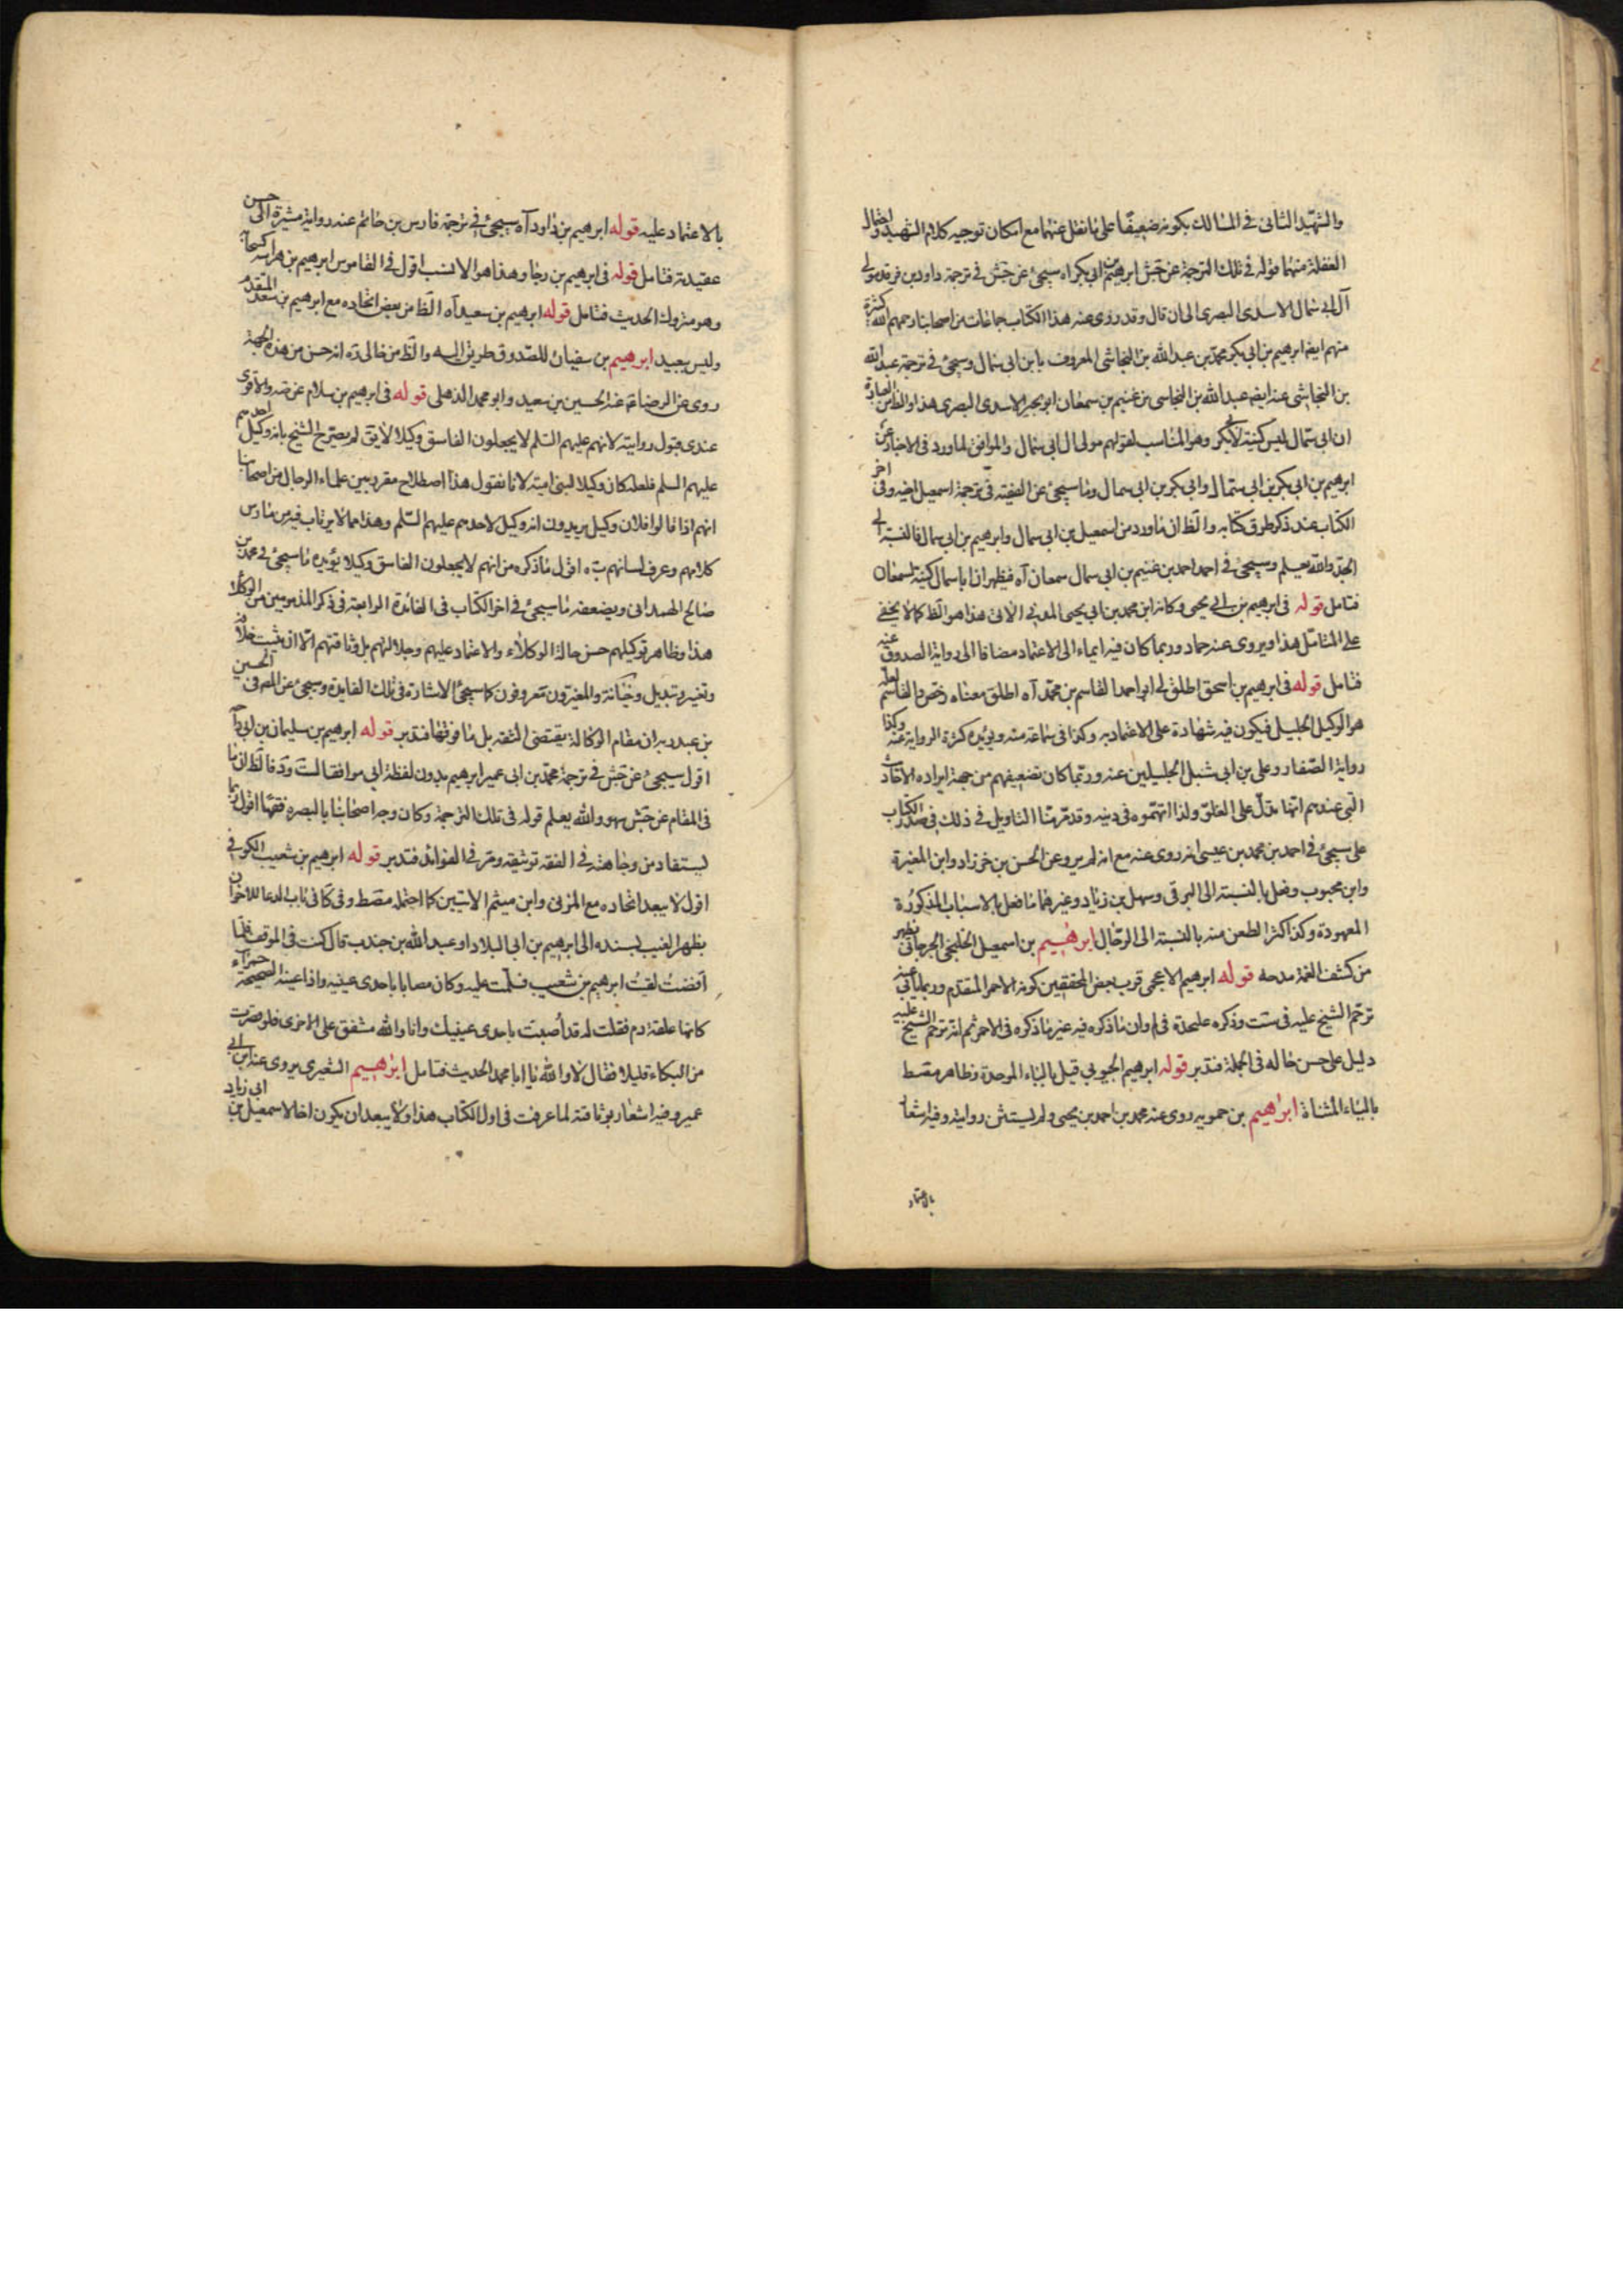 والشهيد الثانى فى المسالك بكونه ضعيفا على ما نقل عنهما مع امكان توجيه كلام الشهيد واحتمال
الغفلة منهما قوله فى تلك الترجمة عن جش ابرهيم بن ابى بكر اه سيجئ عن جش فى ترجمة داود بن فرقد مولى
آل ابى سمال الاسدى البصرى الى ان قال وقد روى عنه هذا الكتاب جماعات من اصحابنا رحمهم الله كثيرة
منهم ايضا ابرهيم بن ابى بكر محمد بن عبد الله بن النجاشى المعروف بابن ابى سمال وسيجئ فى ترجمة عبد الله
بن النجاشى عنه ايضه عبد الله بن النجاسى بن غنيم بن سمعان ابو بجير الاسدى البصرى هذا والظ من العبارة
ان ابى سمال ليس كنية لابى بكر وهو المناسب لقولهم مولى ال ابى سمال والموافق لما ورد فى الاخبار عن
ابرهيم بن ابى بكر بن ابى سمال وابى بكر بن ابى سمال وما سيجئ عن الفقيه فى ترجمة اسمعيل اخيه وفى اخر
الكتاب عند ذكر طرق كتابه والظ ان ما ورد من اسمعيل بن ابى سمال وابرهيم بن ابى سمال فالنسبة الى
الجد والله يعلم وسيجئ فى احمد احمد بن غنيم بن ابى سمال سمعان آه فيظهر ان ابا سمال كنية لسمعان
فتامل قوله فى ابرهيم بن ابى يحيى وكانه ابن محمد بن ابى يحيى المدنى الاتى هذا هو الظ كما لا يخفى
على المتامل هذا ويروى عنه حماد وربما كان فيه ايماء الى الاعتماد مضافا الى رواية الصدوق عنه
فتامل قوله فى ابرهيم بن اسحق اطلق لى ابو احمد القاسم بن محمد آه اطلق معناه رخص والقاسم لعله
هو الوكيل الجليل فيكون فيه شهادة على الاعتماد به وكذا فى سماعه منه ويؤيده كثرة الرواية عنه وكذا
رواية الصفار وعلى بن ابى شبل الجليلين عنه وربما كان تضعيفهم من جهة ايراده الاحاديث
التى عندهم انها تدل على الغلو ولذا اتهموه فى دينه وقد مر منا التاويل فى ذلك فى صدر الكتاب
على سيجئ فى احمد بن محمد بن عيسى انه روى عنه مع انه لم يرو عن الحسن بن خرزاد وابن المغيرة
وابن محبوب وفعل بالنسبة الى البرقى وسهل بن زياد وغيرهما ما فعل بالاسباب المذكورة
المعهودة وكذا كثر الطعن منه بالنسبة الى الرجال ابرهيم بن اسمعيل الخليجى الجرجانى يظهر
من كشف الغمة مدحه قوله ابرهيم الاعجمى قرب بعض المحققين كونه الاحمر المتقدم وربما يابى عنه
ترحم الشيخ عليه فى ست وذكره عليحدة فى لم وان ما ذكره فيه غير ما ذكره فى الاحمر ثم انه ترحم الشيخ عليه
دليل على حسن حاله فى الجملة فتدبر قوله ابرهيم الجبوبى قيل بالباء الموحدة وظاهر مقسط
بالياء المثناة ابراهيم بن حمويه روى عنه محمد بن احمد بن يحيى ولم يستثن روايته وفيه اشعار
بالاعتماد
بالاعتماد عليه قوله ابرهيم بن داود آه سيجئ فى ترجمة فارس بن حاتم عنه رواية مشيرة الى حسن
عقيدته فتامل قوله فى ابرهيم بن رجا وهذا هو الانسب اقول فى القاموس ابرهيم بن هراسة كسحابة
وهو متروك الحديث فتامل قوله ابرهيم بن سعيد آه الظ من بعض اتحاده مع ابرهيم بن سعد المتقدم
وليس ببعيد ابرهيم بن سفيان للصدوق طريق اليه والظ من خالى ره انه حسن من هذه الجهة
روى عن الرضا ع عنه الحسين بن سعيد وابو محمد الذهلى قوله فى ابرهيم بن سلام عن صه والاقوى
عندى قبول روايته لانهم عليهم السلم لا يجعلون الفاسق وكيلا لا يق لم يصرح الشيخ بانه وكيل احدهم
عليهم السلم فلعله كان وكيلا لبنى امية لانا نقول هذا اصطلاح مقرر بين علماء الرجال من اصحابنا
انهم اذا قالوا فلان وكيل يريدون انه وكيل لاحدهم عليهم السلم وهذا مما لا يرتاب فيه من مارس
كلامهم وعرف لسانهم يه اقول ما ذكره من انهم لا يجعلون الفاسق وكيلا يؤيده ما سيجئ فى محمد بن
صالح الهمدانى ويضعفه ما سيجئ فى اخر الكتاب فى الفائدة الرابعة فى ذكر المذمومين من الوكلاء
هذا وظاهر توكيلهم حسن حالة الوكلاء والاعتماد عليهم وجلالتهم بل وثاقتهم الا ان يثبت خلافه
وتغير وتبديل وخيانة والمغيرون معروفون كما سيجئ الاشارة فى تلك الفايدة وسيجئ عن المص فى الحسين
بن عبد ربه ان مقام الوكالة يقتضى الثقة بل ما فوقها فتدبر قوله ابرهيم بن سليمان بن ابى داحة
اقول سيجئ عن جش فى ترجمة محمد بن ابى عمير ابرهيم بدون لفظة ابى موافقا لست ود فالظ ان ما
فى المقام عن جش سهو والله يعلم قوله فى تلك الترجمة وكان وجه اصحابنا بالبصره فقها اقول ربما
يستفاد من وجاهته فى الفقه توثيقه ومر فى الفوائد فتدبر قوله ابرهيم بن شعيب الكوفى
اقول لا يبعد اتحاده مع المزنى وابن ميثم الاتيين كما احتمله مصط وفى كا فى باب الدعا للاخوان
بظهر الغيب بسنده الى ابرهيم بن ابى البلاد او عبد الله بن جندب قال كنت فى الموقف فلما
افضت لقيت ابرهيم بن شعيب فسلمت عليه وكان مصابا باحدى عينيه واذا عينه الصحيحة حمراء
كانها علقة دم فقلت له قد اصبت باحدى عينيك وانا والله مشفق على الاخرى فلو قصرت
من البكاء قليلا فقال لا والله يا ابا محمد الحديث فتامل ابرهيم الشعيرى يروى عنه ابن ابى
عمير وفيه اشعار بوثاقته لما عرفت فى اول الكتاب هذا ولا يبعد ان يكون اخا لاسمعيل بن ابى زياد